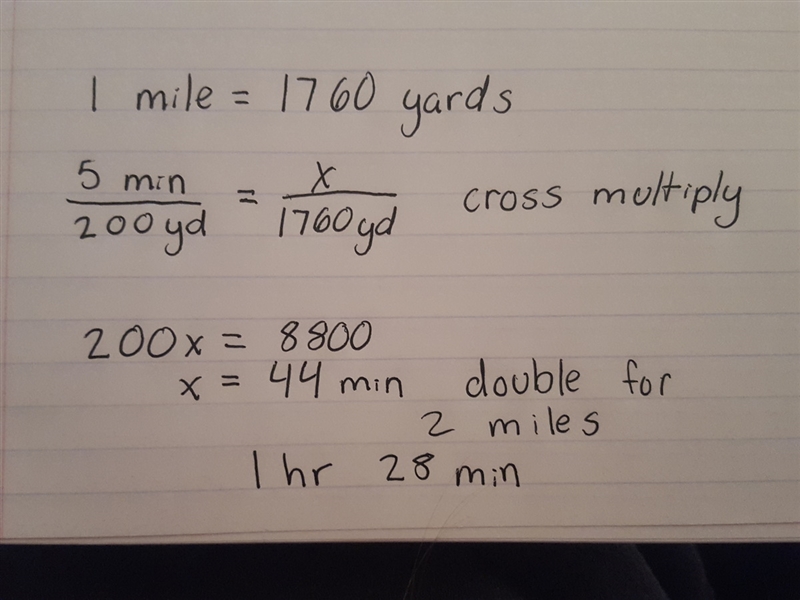 1 mile = 1760 yards
5 min / 200 yd = x / 1760 yd cross multiply
200x = 8800
x = 44 min double for
2 miles
1 hr 28 min